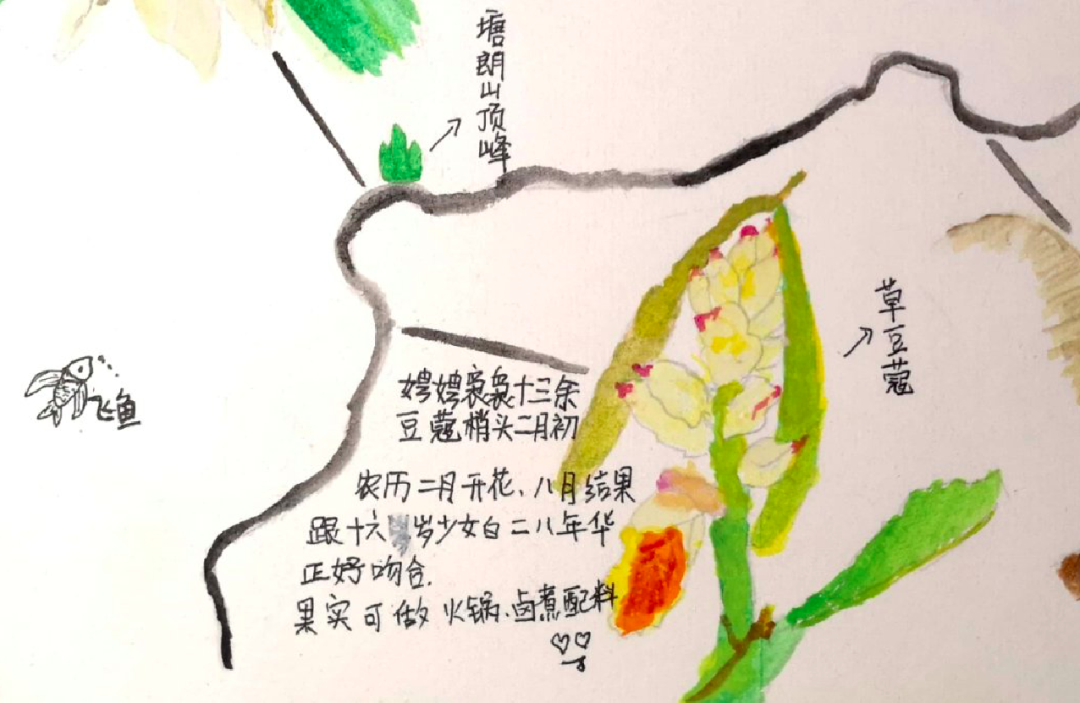 塘朗山顶峰
草豆蔻
飞鱼
娉娉袅袅十三余
豆蔻梢头二月初
农历二月开花、八月结果
跟十六岁少女白二八年华
正好吻合.
果实可做火锅、卤煮配料